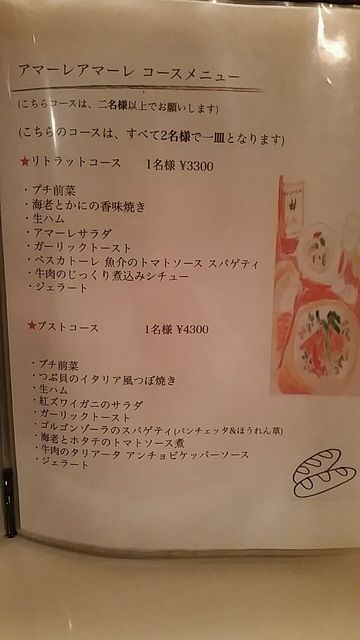 アマーレアマーレ コースメニュー
(こちらコースは、二名様以上でお願いします)
(こちらのコースは、すべて2名様で一皿となります)
★リトラットコース 1名様 ¥3300
・プチ前菜
・海老とかにの香味焼き
・生ハム
・アマーレサラダ
・ガーリックトースト
・ペスカトーレ 魚介のトマトソース スパゲティ
・牛肉のじっくり煮込みシチュー
・ジェラート
★ブストコース 1名様 ¥4300
・プチ前菜
・つぶ貝のイタリア風つぼ焼き
・生ハム
・紅ズワイガニのサラダ
・ガーリックトースト
・ゴルゴンゾーラのスパゲティ(パンチェッタ&ほうれん草)
・海老とホタテのトマトソース煮
・牛肉のタリアータ アンチョビケッパーソース
・ジェラート